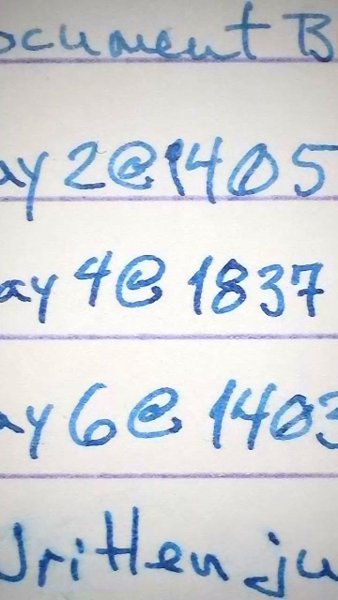 ocument B
ay 2@1405
ay 4@ 1837
ay 6@ 1403
written ju